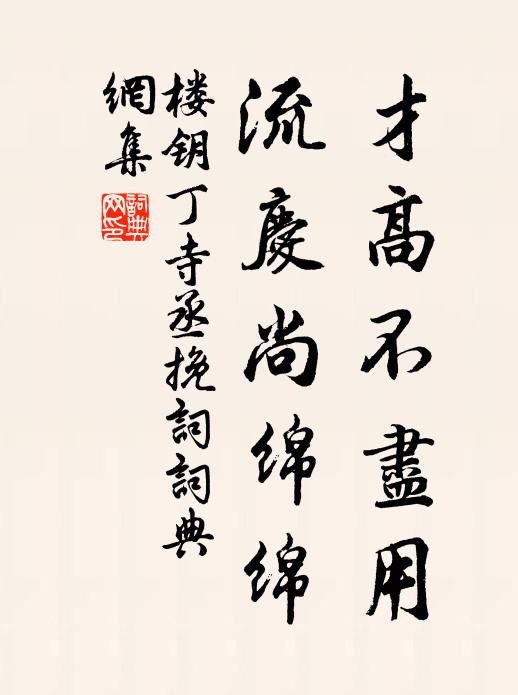 才高不盡用
流慶尚绵绵
楼钥丁寺丞挽詞詞典
網集
詞典
网印